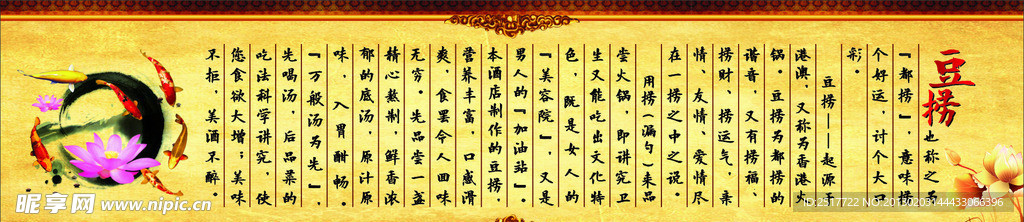 豆捞
也称之为
『都捞』，意味捞
个好运，讨个大口
彩。
豆捞——起源
港澳，又称为香港火
锅。豆捞为都捞的
谐音，又有捞福、
捞财、捞运气，亲
情、友情、爱情尽
在一捞之中之说。
用捞（漏勺）来品
尝火锅，即讲究卫
生又能吃出文化特
色，既是女人的
『美容院』，又是
男人的『加油站』。
本酒店制作的豆捞，
营养丰富，口感滑
爽，食罢令人回味
无穷。先品尝一盏
精心熬制，鲜香浓
郁的底汤，原汁原
味，入胃酣畅。
『万般汤为先』，
先喝汤，后品菜的
吃法科学讲究，使
您食欲大增；美味
不拒，美酒不醉。
昵享网 www.nipic.cn
NO:20150209144433066396